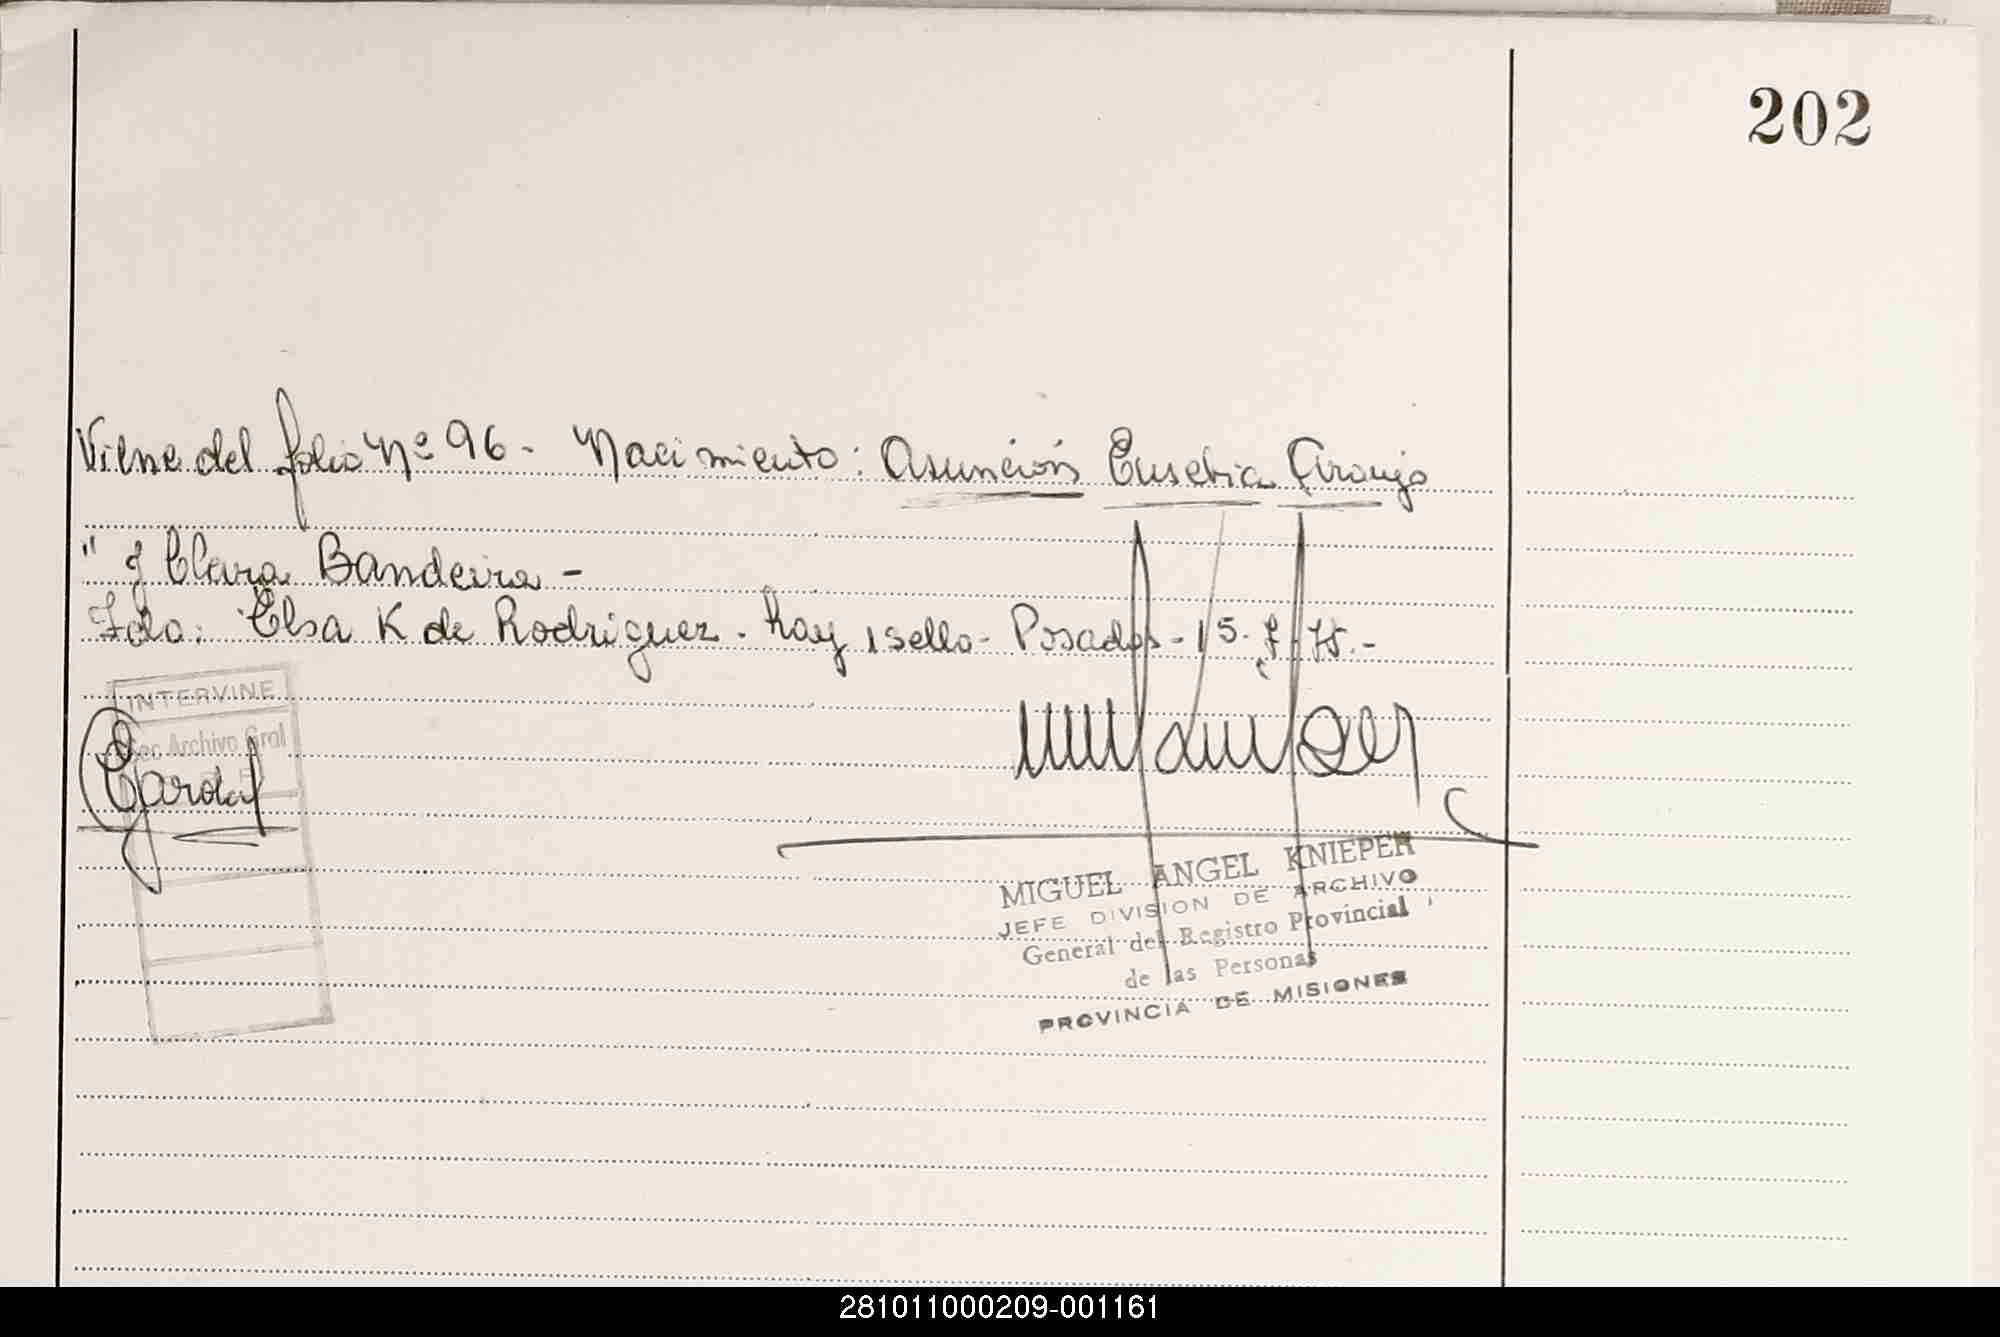 202
Viene del folio Nº 96 - Nacimiento: Asunción Eusebia Araujo
" y Clara Bandeira -
Fdo: Elsa K de Rodriguez - Hay 1 sello - Posadas - 15. 7. 75.-
INTERVINE
Sec Archivo Gral
MIGUEL ANGEL KNIEPER
JEFE DIVISION DE ARCHIVO
General del Registro Provincial
de las Personas
PROVINCIA DE MISIONES
281011000209-001161